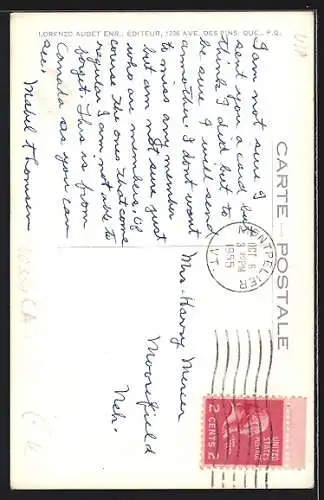 LORENZO AUDET ENR., ÉDITEUR, 1236 AVE. DES PINS, QUE., P.Q.
I am not sure I
sent you a card but
think I did but to
be sure I will send
another I don't want
to miss any member
but am not sure just
who are members, of
course the ones that come
regular I am not able to
forget. This is from
Canada as you can
see.
Mabel Thomsen
CARTE POSTALE
MONTPELIER
OCT 6
3 PM
1955
VT.
Mrs. Harry Mercer
Moorefield
Neb.
UNITED
STATES
POSTAGE
2 CENTS 2